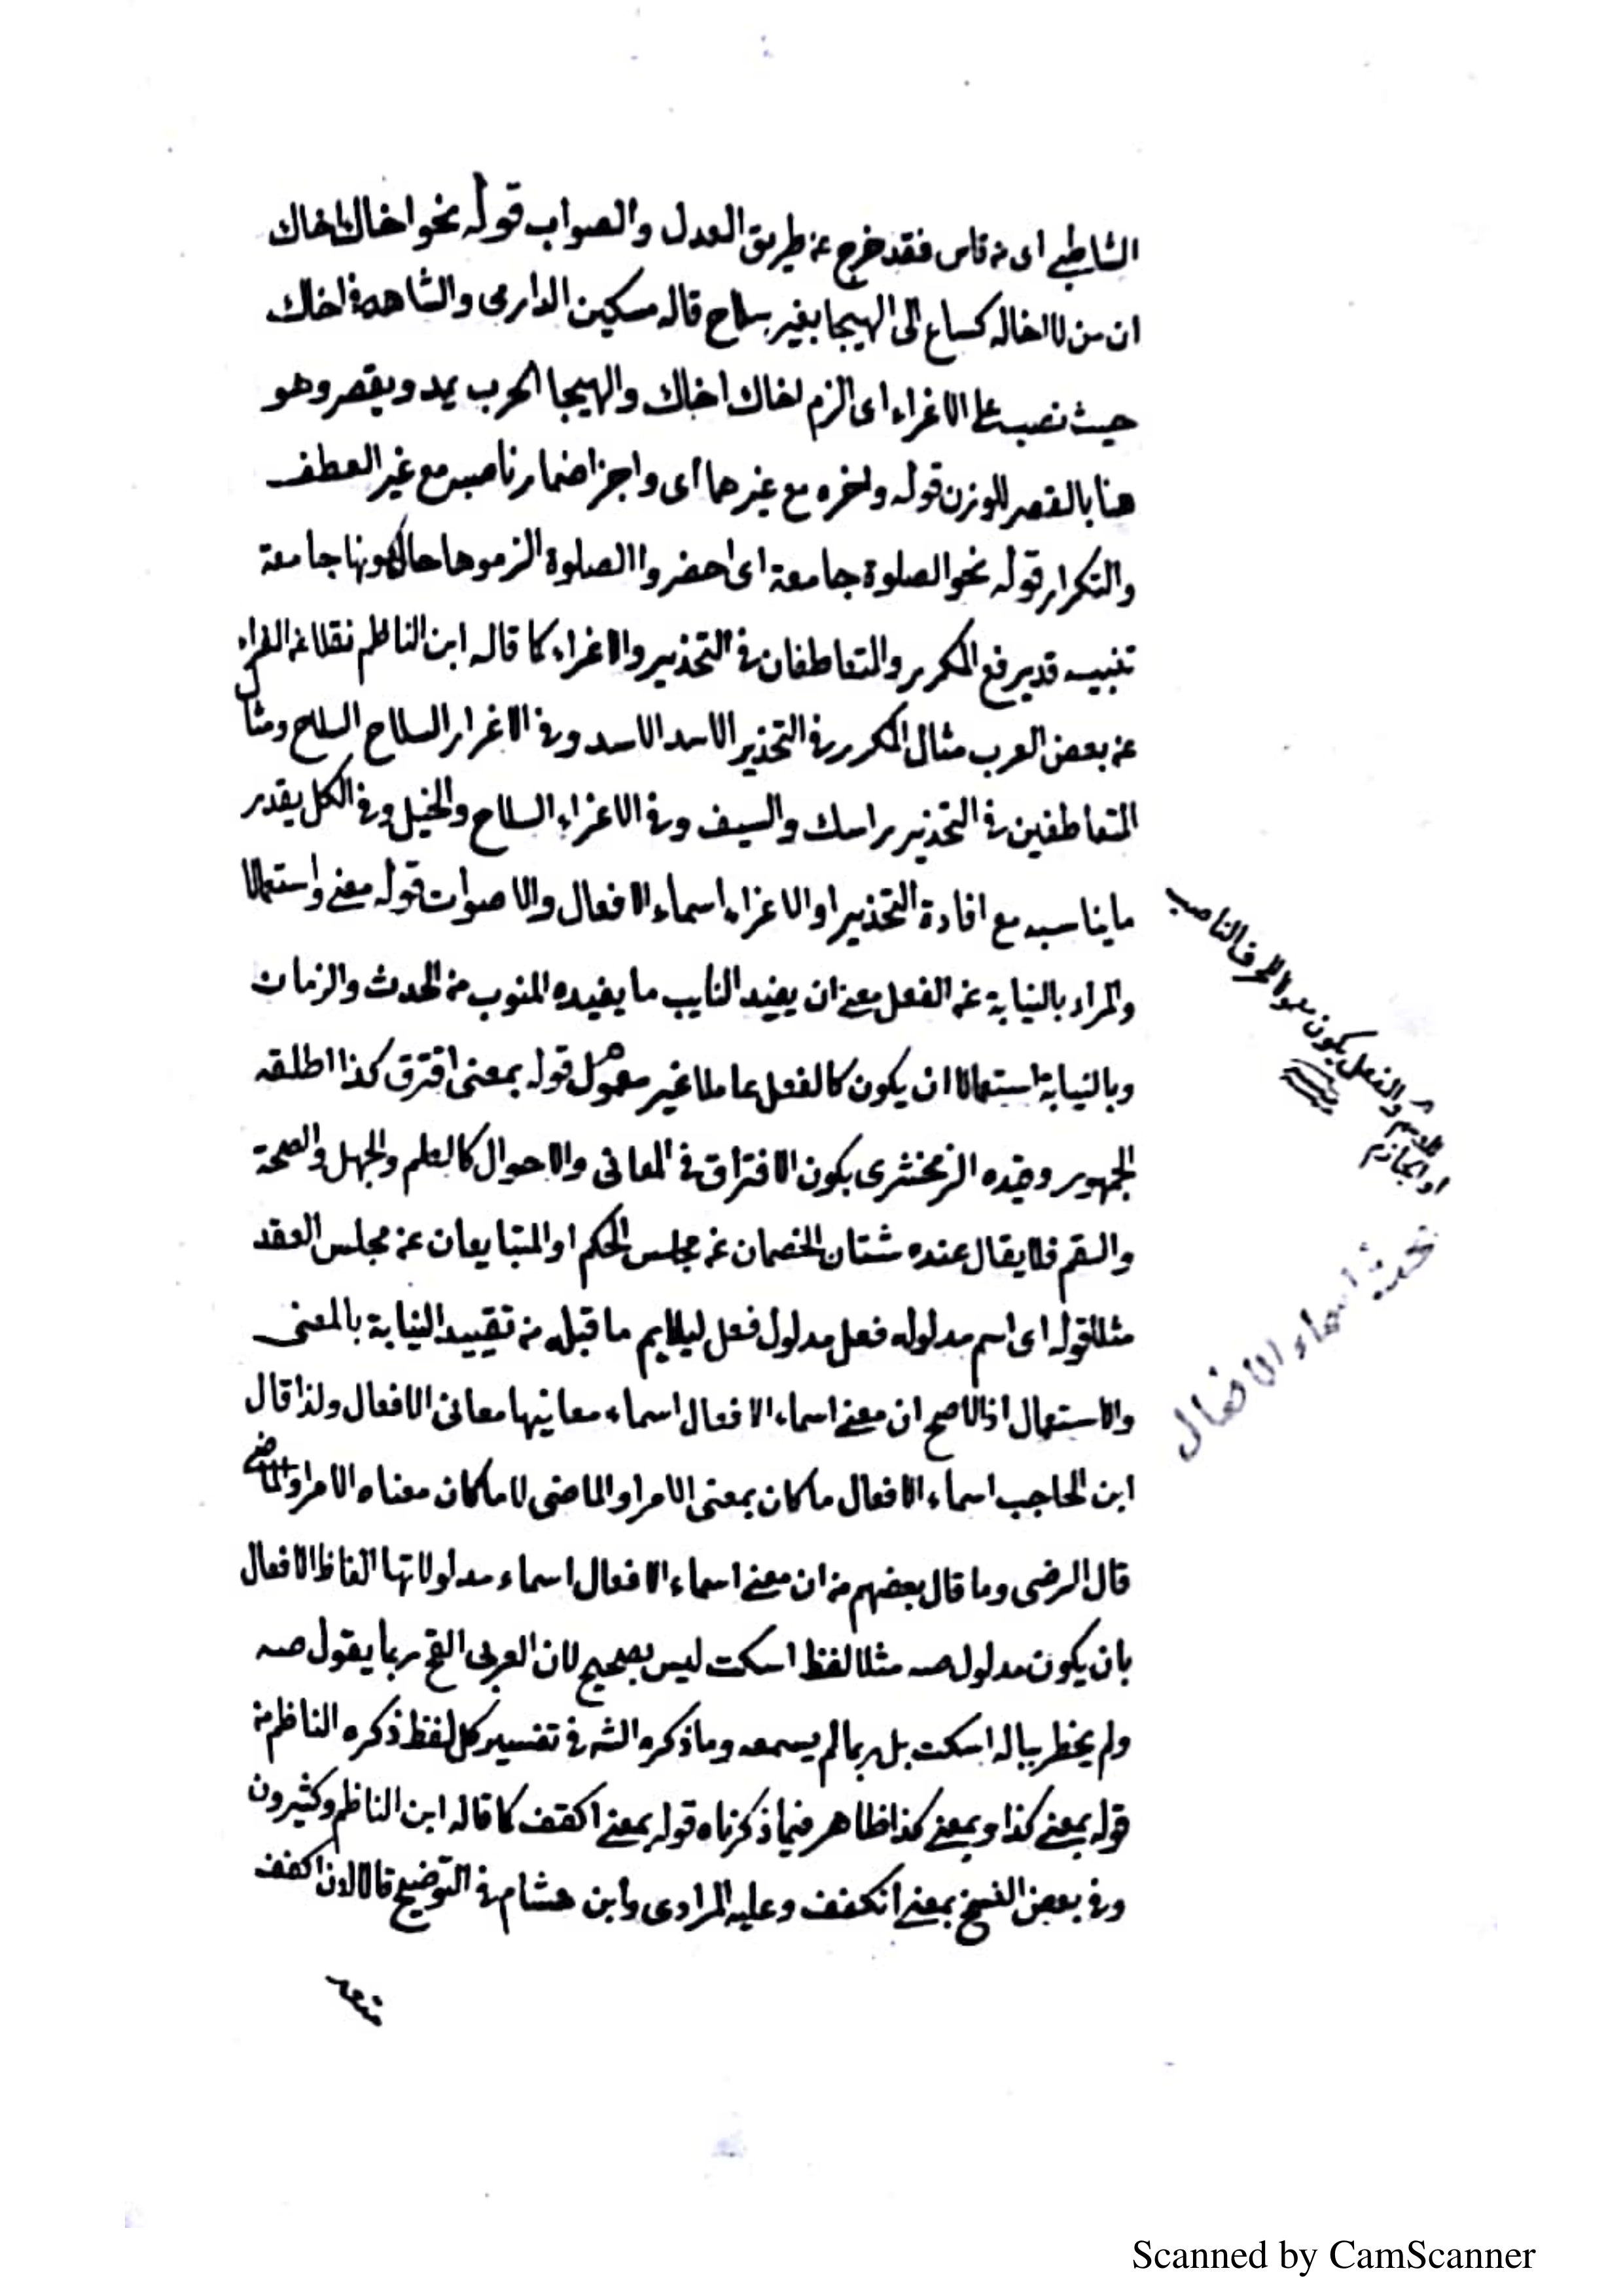 الشاطبي اى من قاس فقد خرج عن طريق العدل والصواب قوله نحو اخاك اخاك
ان من لا اخا له كساع الى الهيجا بغير سلاح قاله مسكين الدارمى والشاهد فى اخاك
حيث نصب على الاغراء اى الزم اخاك اخاك والهيجا الحرب يمد ويقصر وهو
هنا بالقصر للوزن قوله واخره مع غيرهما اى واجز اضمار ناصبه مع غير العطف
والتكرار قوله نحو الصلوة جامعة اى احضروا الصلوة الزموها حال كونها جامعة
تنبيه قد يرفع المكرر والتعاطفان فى التحذير والاغراء كما قاله ابن الناظم نقلا عن الفراء
عن بعض العرب مثال المكرر فى التحذير الاسد الاسد وفى الاغراء السلاح السلاح ومثال
المتعاطفين فى التحذير راسك والسيف وفى الاغراء السلاح والخيل وفى الكل يقدر
ما يناسبه مع افادة التحذير او الاغراء اسماء الافعال والاصوات قوله معنى واستعمالا
والمراد بالنيابة عن الفعل معنى ان يفيد النايب ما يفيده المنوب من الحدث والزمان
وبالنيابة استعمالا ان يكون كالفعل عاملا غير معمول قوله بمعنى افترق كذا اطلقه
الجمهور وقيده الزمخشرى بكون الافتراق فى المعانى والاحوال كالعلم والجهل والصحة
والسقم فلا يقال عنده شتان الخصمان عن مجلس الحكم او المتبايعان عن مجلس العقد
مثلا قوله اى اسم مدلوله فعل مدلول فعل ليلايم ما قبله من تقييد النيابة بالمعنى
والاستعمال اذ الاصح ان معنى اسماء الافعال اسماء معانيها معانى الافعال ولذا قال
ابن الحاجب اسماء الافعال ما كان بمعنى الامر او الماضى لا ما كان معناه الامر والماضى
قال الرضى وما قال بعضهم من ان معنى اسماء الافعال اسماء مدلولاتها الفاظ الافعال
بان يكون مدلول صه مثلا لفظ اسكت ليس بصحيح لان العربى القح ربما يقول صه
ولم يخطر بباله اسكت بل ربما لم يسمعه وما ذكره الشه فى تفسير كل لفظ ذكره الناظم من
قوله بمعنى كذا وبمعنى كذا ظاهر فيما ذكرناه قوله بمعنى اكفف كما قاله ابن الناظم وكثيرون
وفى بعض النسخ بمعنى انكفف وعليه المرادى وابن هشام فى التوضيح قالا لان اكفف
والفعل يكون معمولا لحرف الناصب
او الجازم
اسماء الافعال
متعد
Scanned by CamScanner